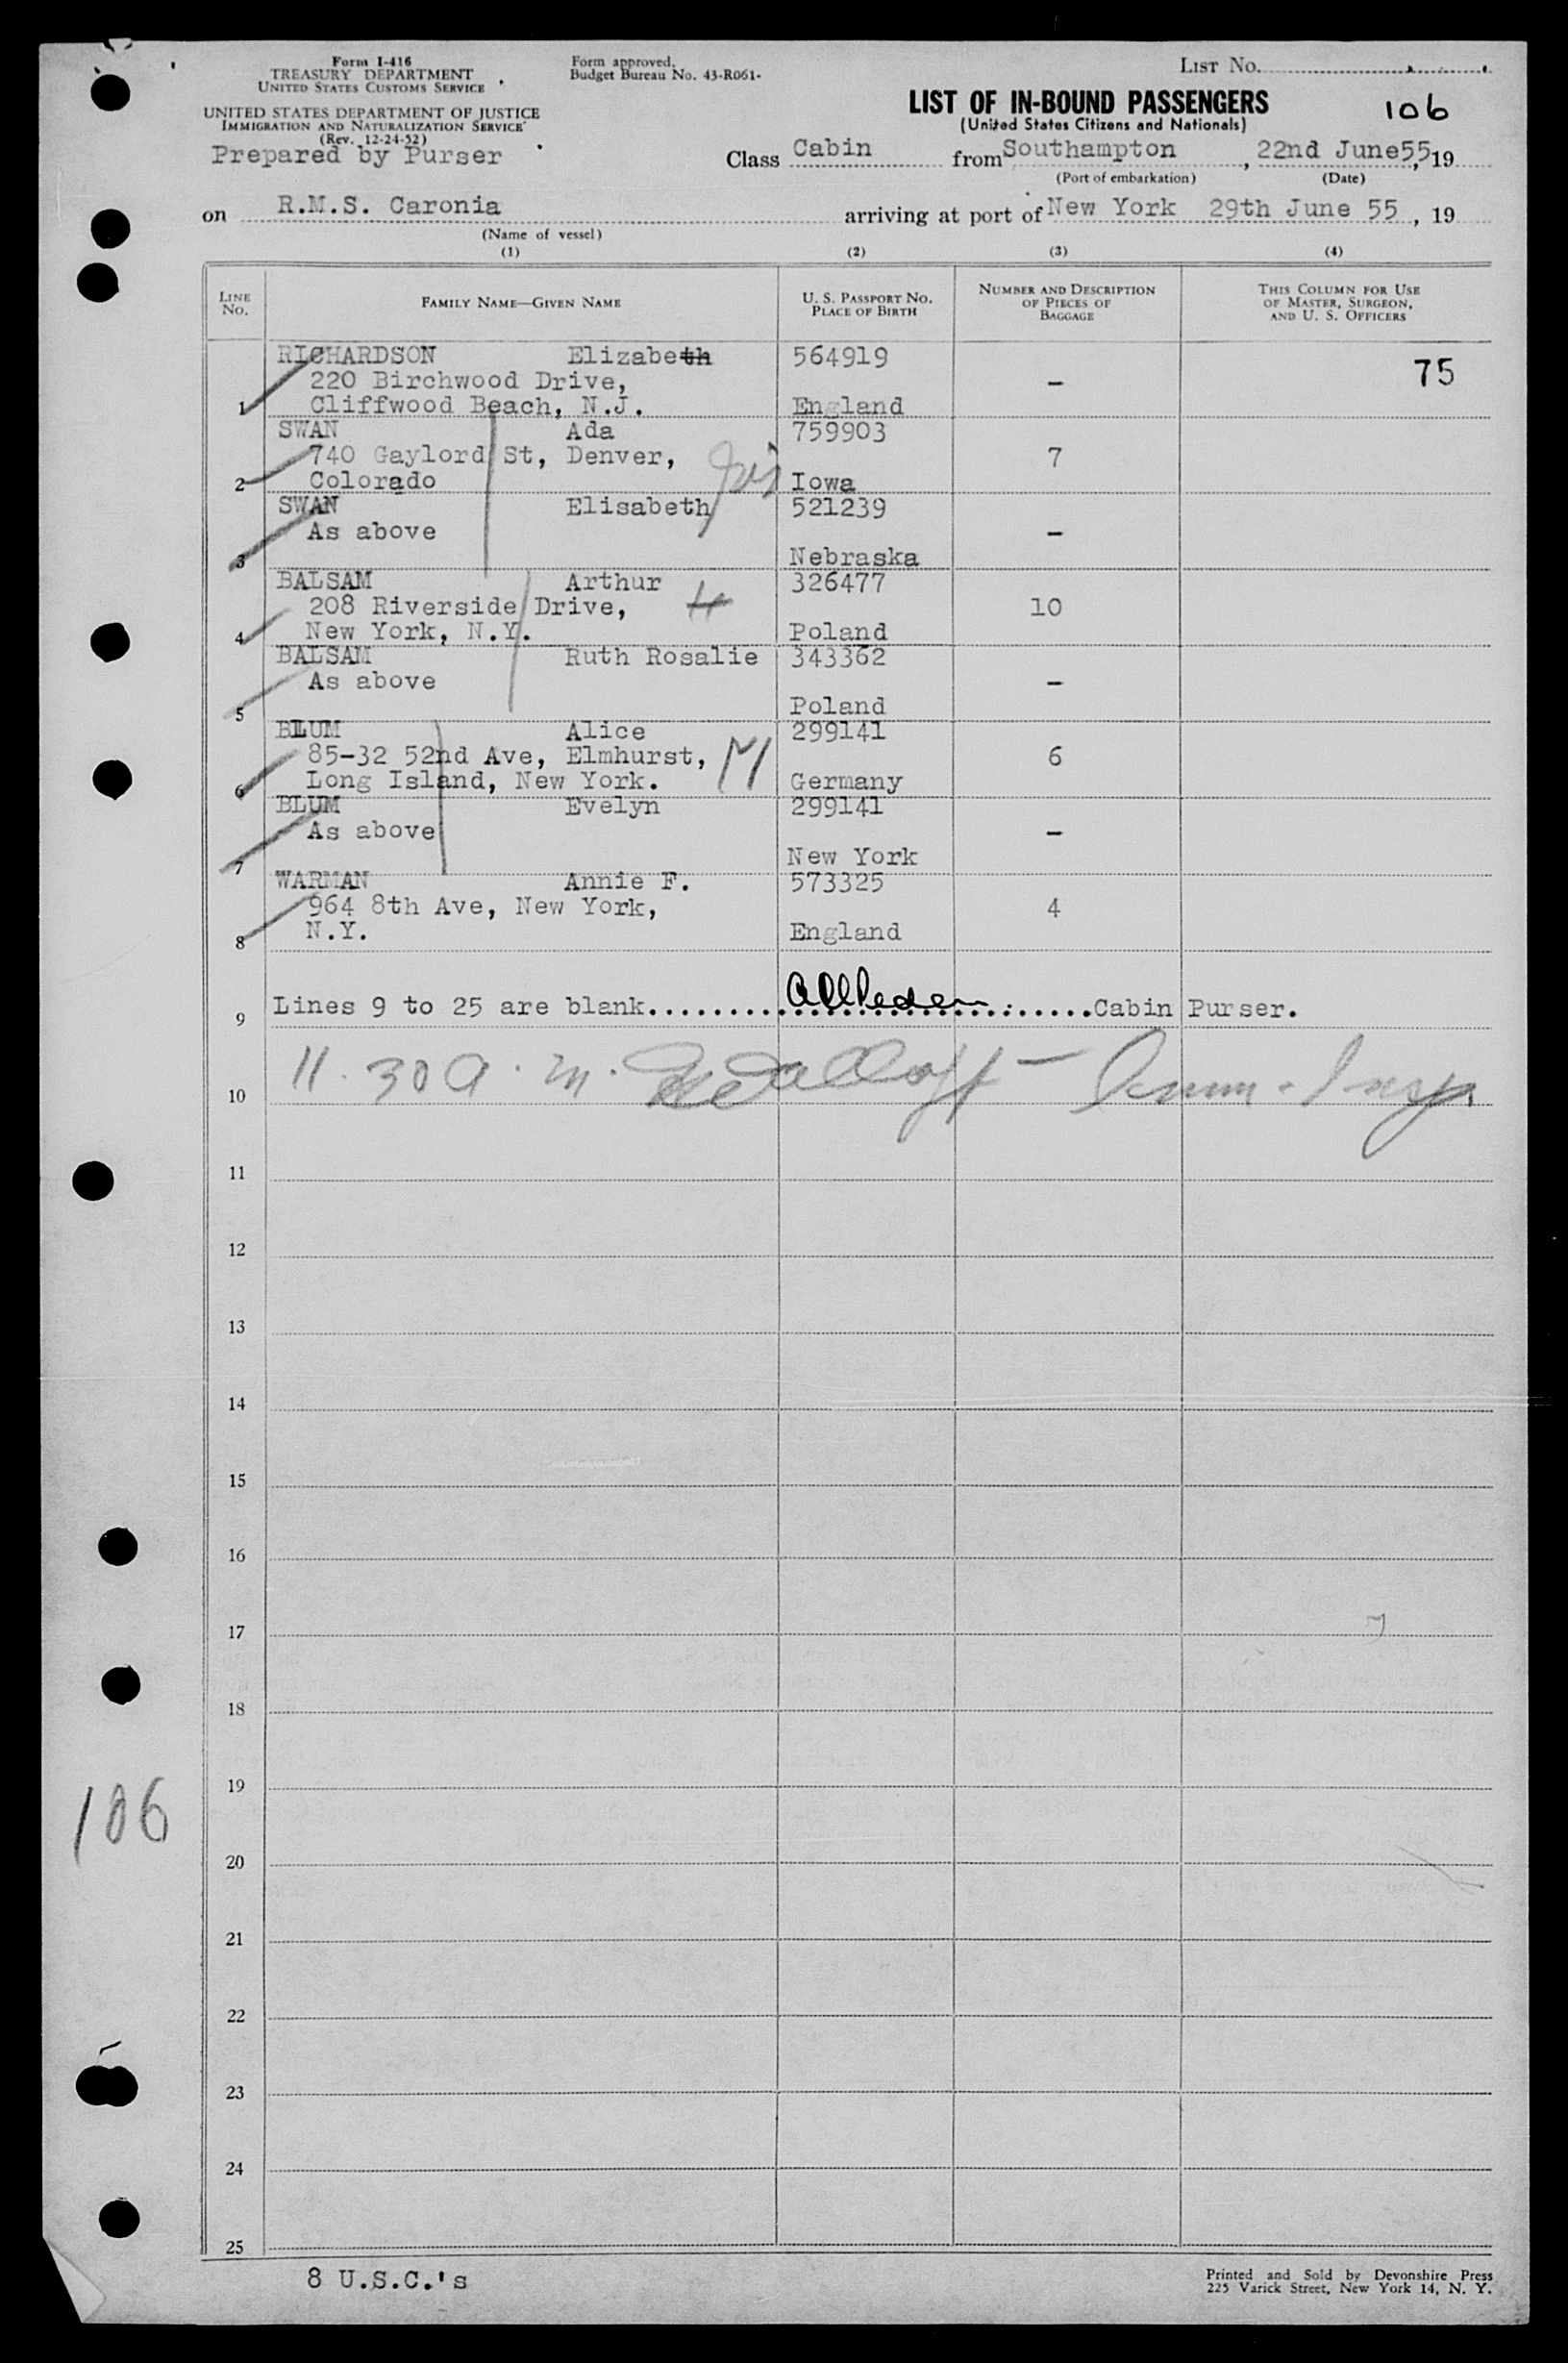 Form I-416
TREASURY DEPARTMENT
UNITED STATES CUSTOMS SERVICE
UNITED STATES DEPARTMENT OF JUSTICE
IMMIGRATION AND NATURALIZATION SERVICE
(Rev. 12-24-52)
Prepared by Purser
Form approved.
Budget Bureau No. 43-R061-
LIST No.
LIST OF IN-BOUND PASSENGERS
106
(United States Citizens and Nationals)
Class Cabin from Southampton, 22nd June55, 19
(Port of embarkation) (Date)
on R.M.S. Caronia arriving at port of New York 29th June 55, 19
(Name of vessel)
(1) (2) (3) (4)
LINE No. FAMILY NAME—GIVEN NAME U. S. PASSPORT No. PLACE OF BIRTH NUMBER AND DESCRIPTION OF PIECES OF BAGGAGE THIS COLUMN FOR USE OF MASTER, SURGEON, AND U. S. OFFICERS
RICHARDSON Elizabeth 564919
220 Birchwood Drive, - 75
1 Cliffwood Beach, N.J. England
SWAN Ada 759903
740 Gaylord St, Denver, 7
2 Colorado Iowa
SWAN Elisabeth 521239
As above -
3 Nebraska
BALSAM Arthur 326477
208 Riverside Drive, 10
4 New York, N.Y. Poland
BALSAM Ruth Rosalie 343362
As above -
5 Poland
BLUM Alice 299141
85-32 52nd Ave, Elmhurst, 6
6 Long Island, New York. Germany
BLUM Evelyn 299141
As above -
7 New York
WARMAN Annie F. 573325
964 8th Ave, New York, 4
8 N.Y. England
9 Lines 9 to 25 are blank.......... Cabin Purser.
10 11.30 a.m. Imm. Insp
11
12
13
14
15
16
17
18
19
106
20
21
22
23
24
25
8 U.S.C.'s
Printed and Sold by Devonshire Press
225 Varick Street, New York 14, N. Y.